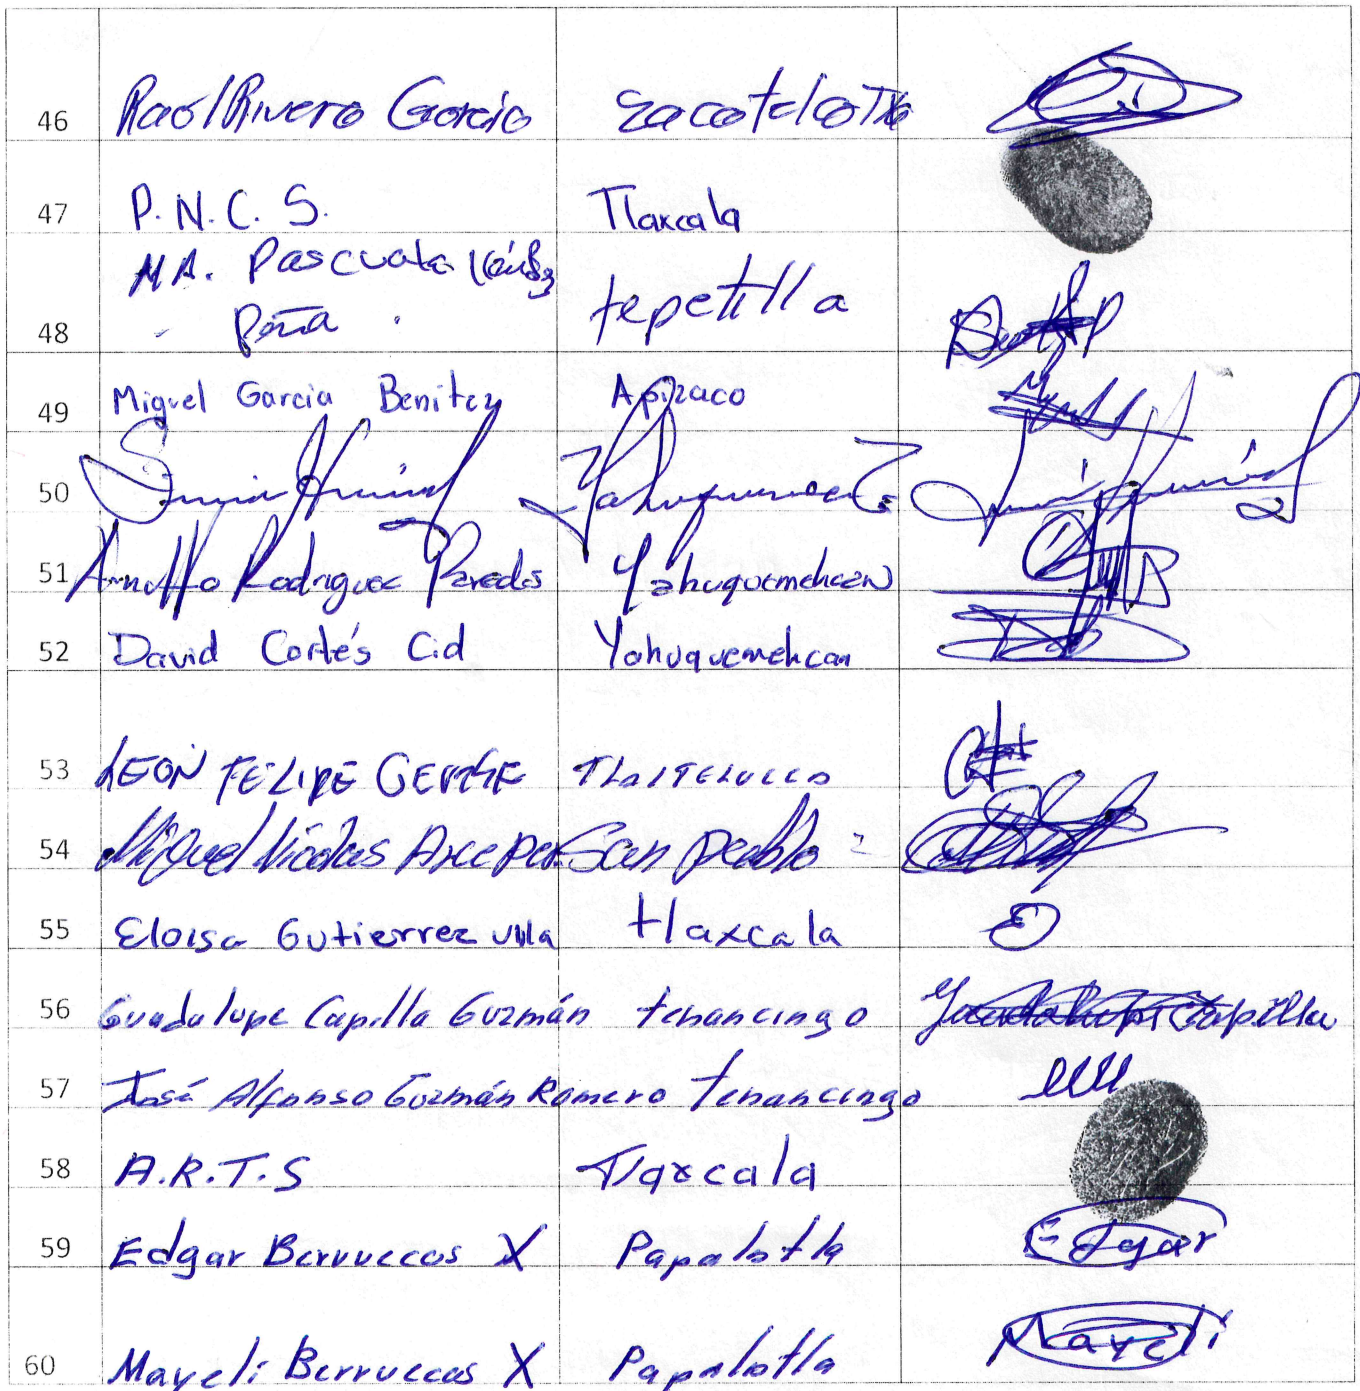 46 Raól Rivera García Zacatelco Tlx
47 P. N. C. S. Tlaxcala
MA. Pascuala
48 tepetitla
49 Miguel Garcia Benitez Apizaco
50
51 Arnulfo Rodriguez Paredes Yahuquemehcan
52 David Cortés Cid Yahuquemehcan
53 LEON FELIPE
54 Miguel Nicolas Arce San pablo
55 Eloisa Gutierrez tlaxcala
56 Guadalupe Capilla Guzmán tenancingo
57 José Alfonso Guzmán Romero tenancingo
58 A.R.T.S Tlaxcala
59 Edgar Berruecos X Papalotla Edgar
60 Mayeli Berruecos X Papalotla Mayeli